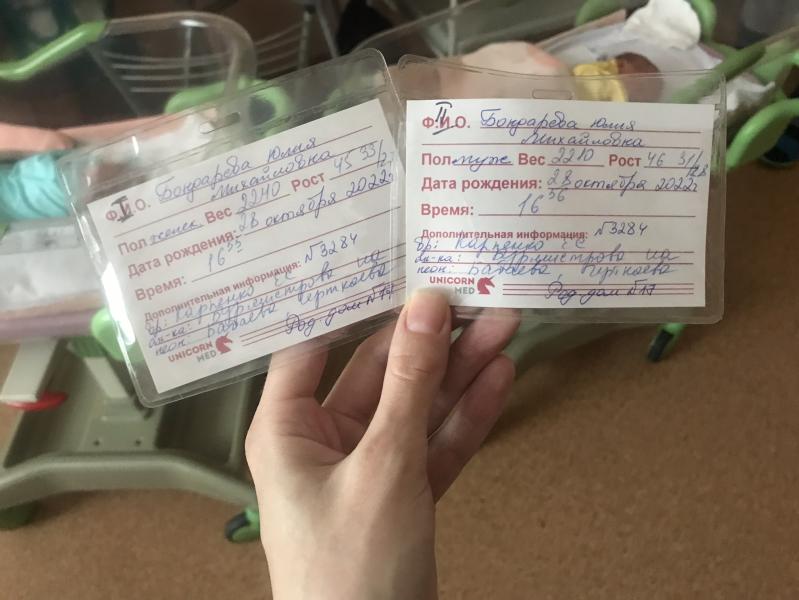 I
Ф.И.О. Бондарева Юлия
Михайловна
Пол женск Вес 2240 Рост 45
Дата рождения: 28 октября 2022г
Время: 16 35
Дополнительная информация: №3284
вр: Карпенко ЕС
ак-ка:
неон: Бабаева,
Род дом №17
UNICORN
MED
II
Ф.И.О. Бондарева Юлия
Михайловна
Пол муж Вес 2210 Рост 46
Дата рождения: 28 октября 2022г
Время: 16 36
Дополнительная информация: №3284
вр: Карпенко ЕС
ак-ка:
неон: Бабаева,
Род дом №17
UNICORN
MED